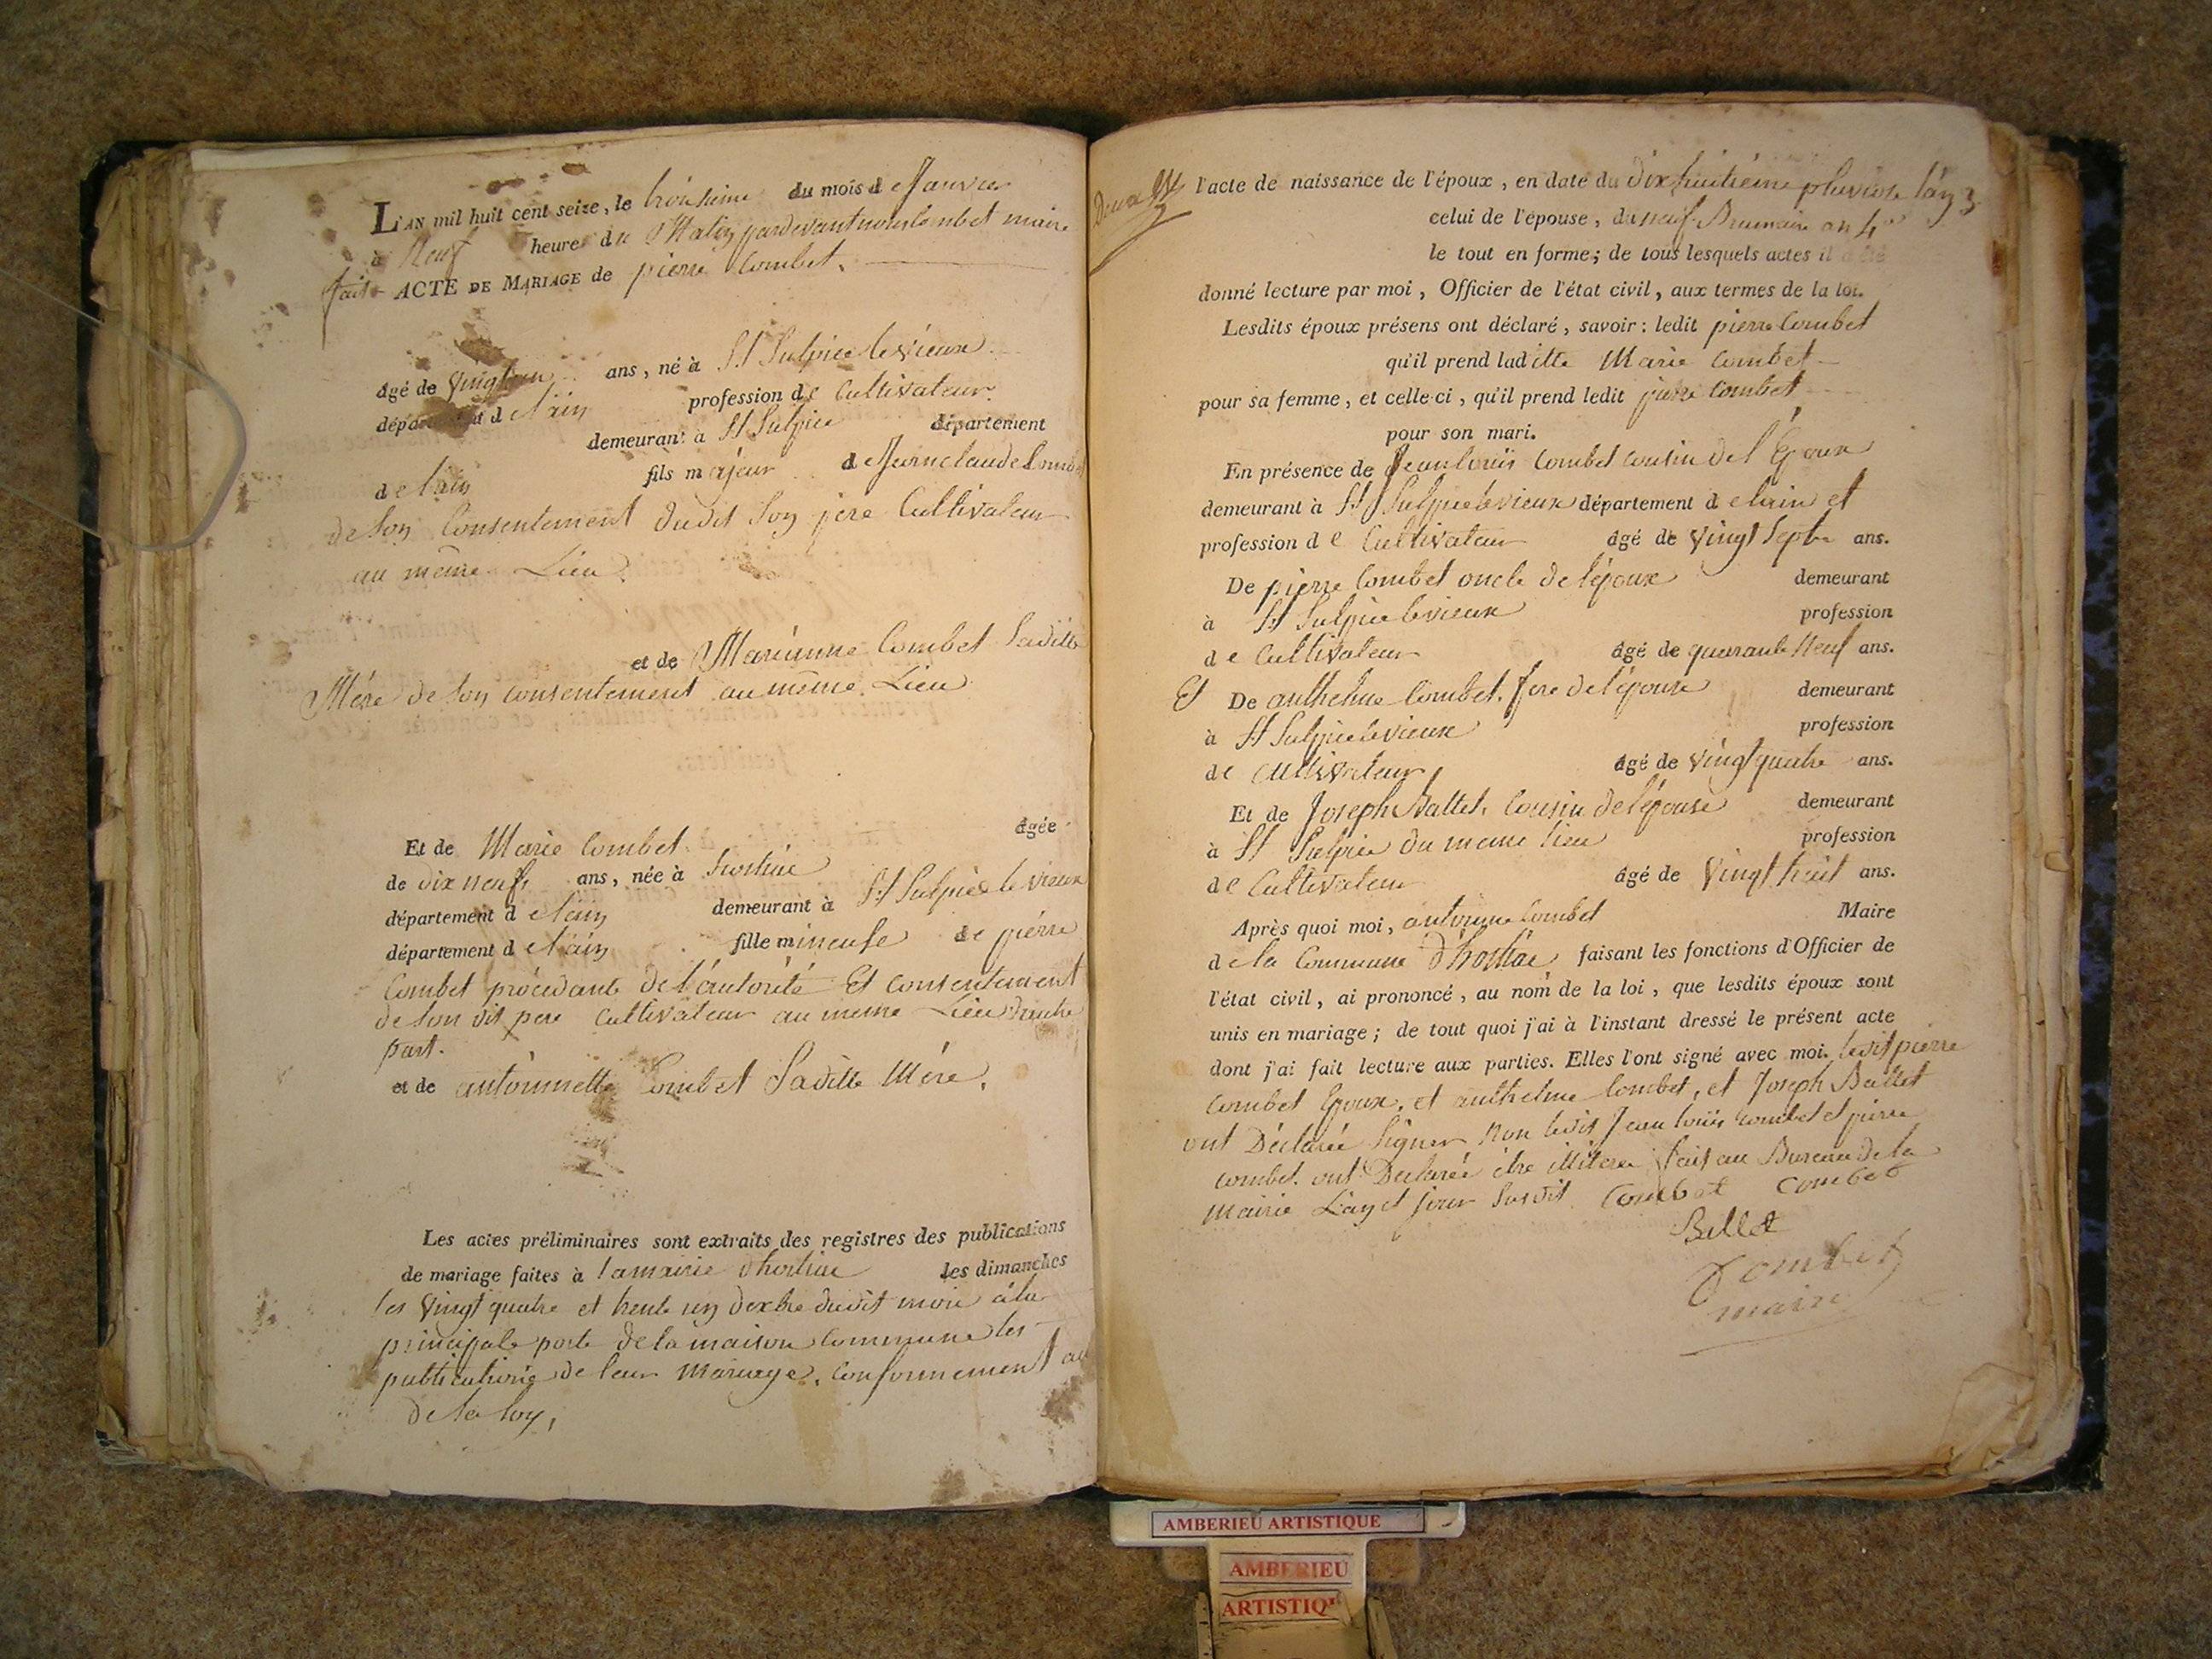 L'AN mil huit cent seize, le troisieme du mois de Janvier
à Neuf heures du Matin pardevant nous Combet maire
fait ACTE DE MARIAGE de pierre Combet.
âgé de vingt un ans, né à St Sulpice le vieux
département de l'ain profession de Cultivateur
demeurant à St Sulpice département
de l'ain fils majeur de Jean claude Combet
de son Consentement dudit son père Cultivateur
au même Lieu.
et de Marianne Combet Saditte
Mére de son consentement au même Lieu
Et de Marie Combet âgée
de dix neuf ans, née à hostiae
département de l'ain demeurant à St Sulpice le vieux
département de l'ain fille mineuse de pierre
Combet procédante de l'autorité Et consentement
de son dit pere Cultivateur au meme Lieu d'autre
part.
et de antoinnette Combet Saditte Mére.
Les actes préliminaires sont extraits des registres des publications
de mariage faites à la mairie d'hostiae les dimanches
les vingt quatre et trente un dexbre dudit mois à la
principale porte de la maison Commune les
publications de leur Mariage, conformement au
de la loy,
l'acte de naissance de l'époux, en date du dix huitiéme pluviose l'an 3
celui de l'épouse, du neuf Brumaire an 4e
le tout en forme; de tous lesquels actes il a été
donné lecture par moi, Officier de l'état civil, aux termes de la loi.
Lesdits époux présens ont déclaré, savoir: ledit pierre Combet
qu'il prend laditte Marie Combet
pour sa femme, et celle-ci, qu'il prend ledit pierre Combet
pour son mari.
En présence de Jean louis Combet cousin de l'Epoux
demeurant à St Sulpice le vieux département de l'ain et
profession de Cultivateur âgé de vingt Sept ans.
De pierre Combet oncle de l'époux demeurant
à St Sulpice le vieux profession
de Cultivateur âgé de quarante Neuf ans.
Et De anthelme Combet. frere de l'épouse demeurant
à St Sulpice le vieux profession
de Cultivateur âgé de vingt quatre ans.
Et de Joseph Ballet Cousin de l'épouse demeurant
à St Sulpice du meme lieu profession
de Cultivateur âgé de vingt huit ans.
Après quoi moi, antoinne Combet Maire
de la Commune d'hostiae faisant les fonctions d'Officier de
l'état civil, ai prononcé, au nom de la loi, que lesdits époux sont
unis en mariage; de tout quoi j'ai à l'instant dressé le présent acte
dont j'ai fait lecture aux parties. Elles l'ont signé avec moi. ledit pierre
Combet Epoux, et anthelme Combet, et Joseph Ballet
ont Déclarée Signer Non ledit Jean louis Combet et pierre
Combet ont Declarée être illiteré fait au Bureau de la
mairie L'an et jour Susdit Combet Combet
Ballet
Combet
maire
AMBERIEU ARTISTIQUE
AMBERIEU
ARTISTIQ